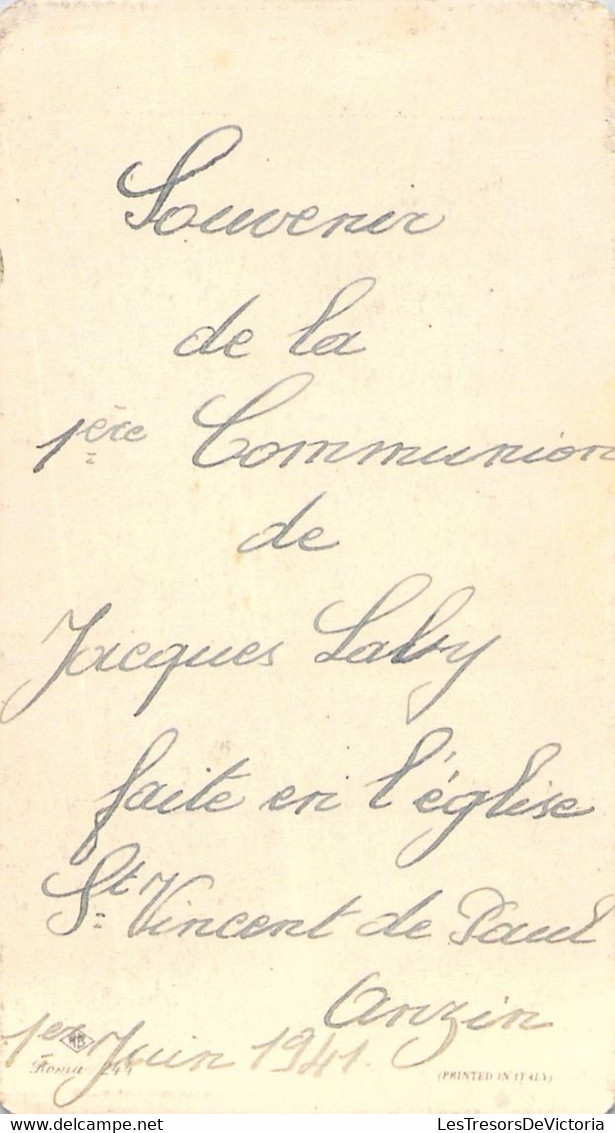 Souvenir
de la
1ère Communion
de
Jacques Laby
faite en l'église
St Vincent de Paul
Anzin
1er Juin 1941.
Roma
(PRINTED IN ITALY)
LesTresorsDeVictoria